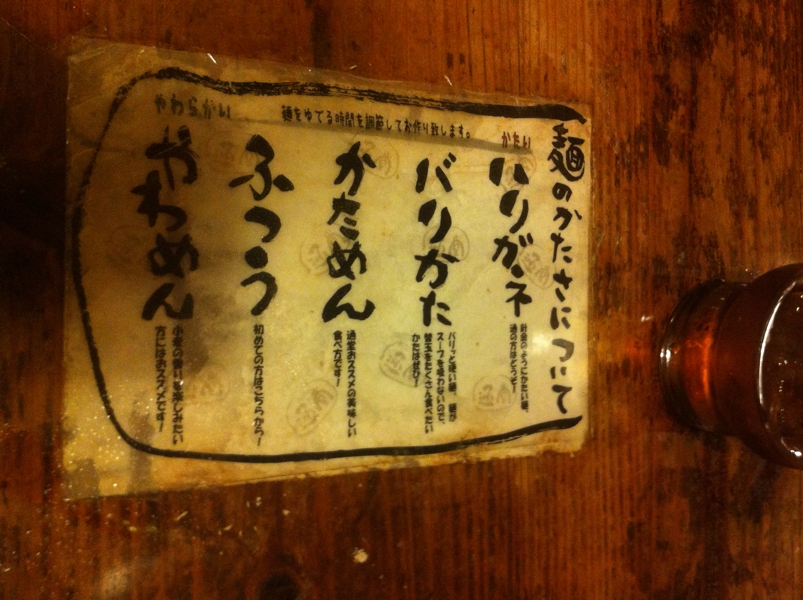 麺のかたさについて
麺をゆでる時間を調節してお作り致します。
かたい
ハリガネ
針金のようにかたい麺、
通の方はどうぞ!
バリかた
バリッと硬い麺、麺が
スープを吸わないので、
替玉をたくさん食べたい
かたはぜひ!
かためん
通堂おススメの美味しい
食べ方です!
ふつう
初めての方はこちらから!
やわらかい
やわめん
小麦の香りを楽しみたい
方にはおススメです!